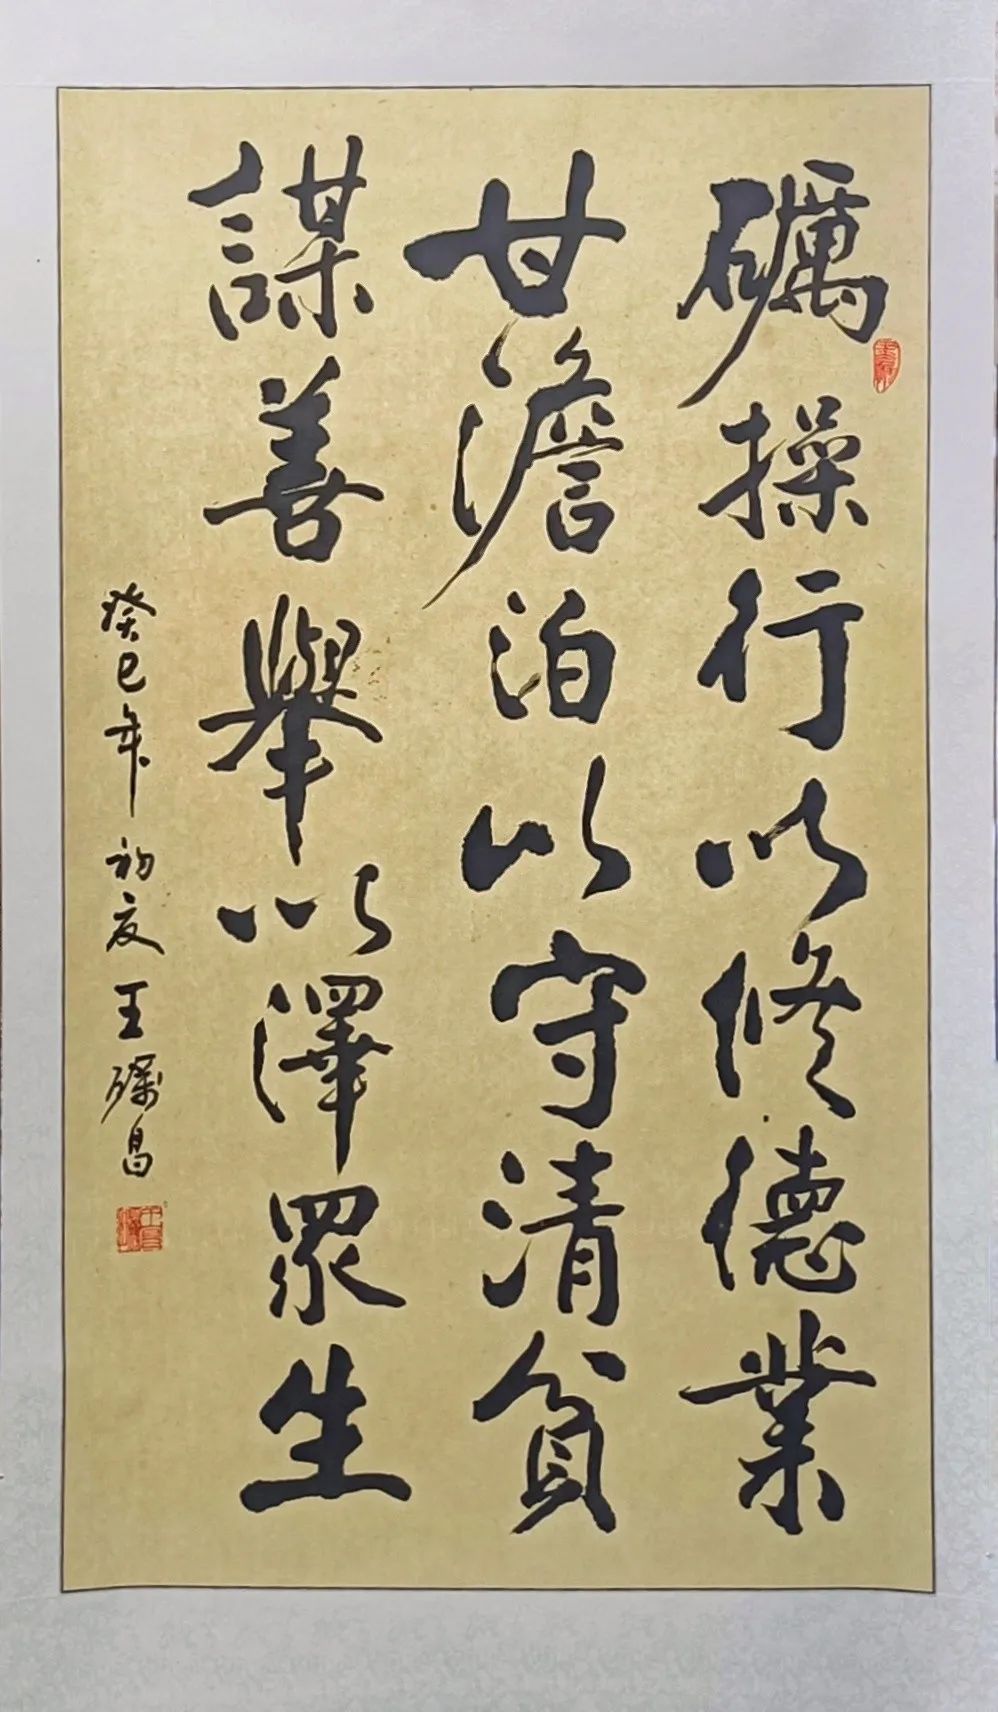 礪操行以修德業
甘澹泊以守清貧
謀善舉以澤眾生
癸巳年初夏王礪昌